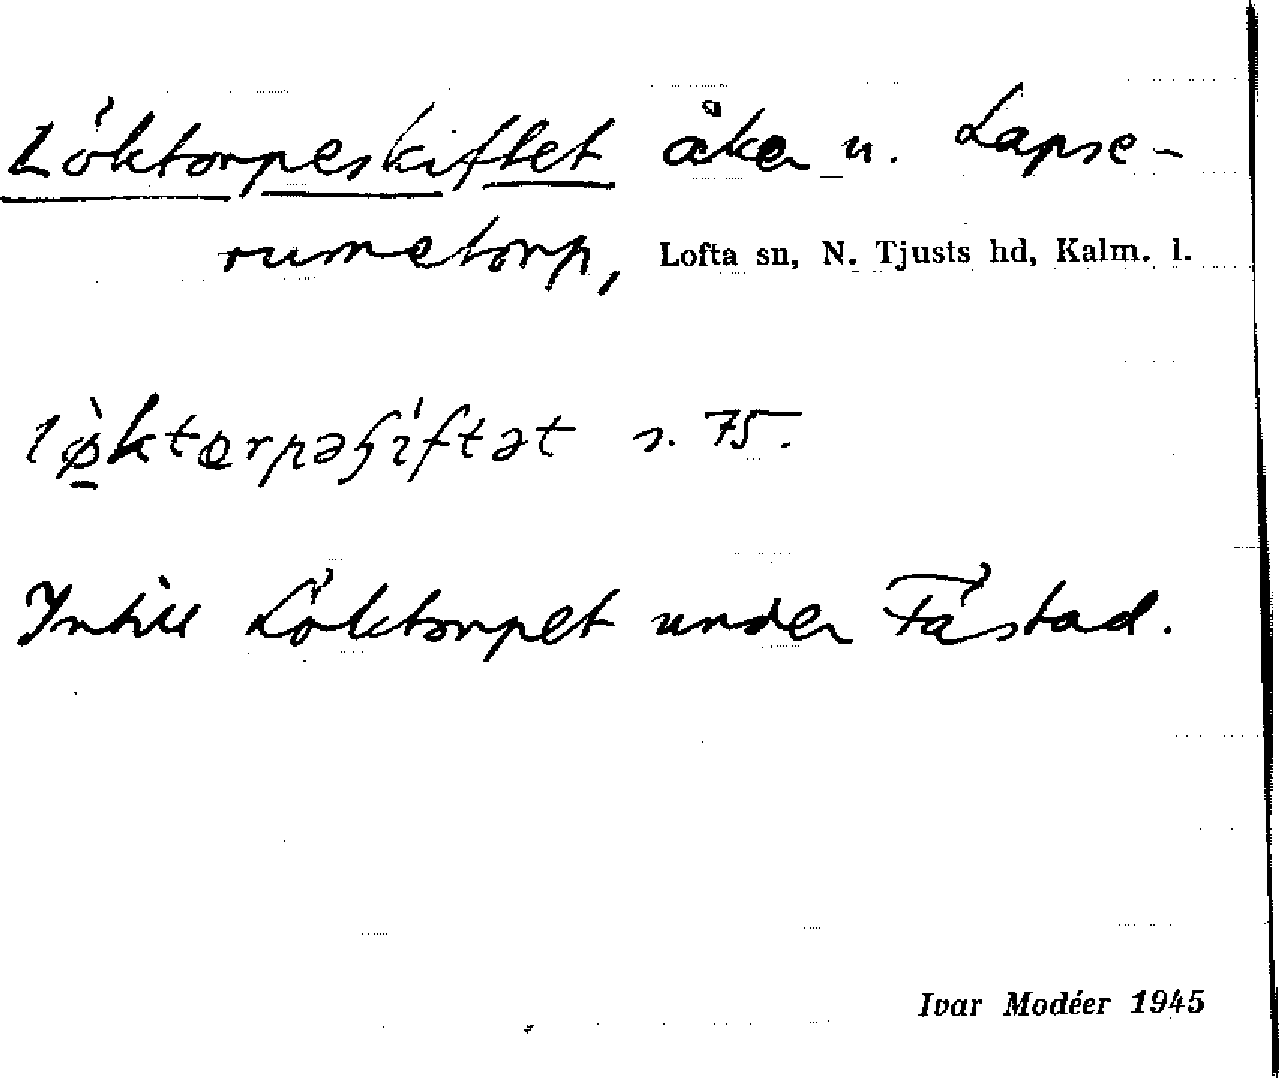 Löktorpeskiftet åker u. Lapse-
rumetorp, Lofta sn, N. Tjusts hd, Kalm. l.
s. 75.
Intill Löktorpet under Fästad.
Ivar Modéer 1945